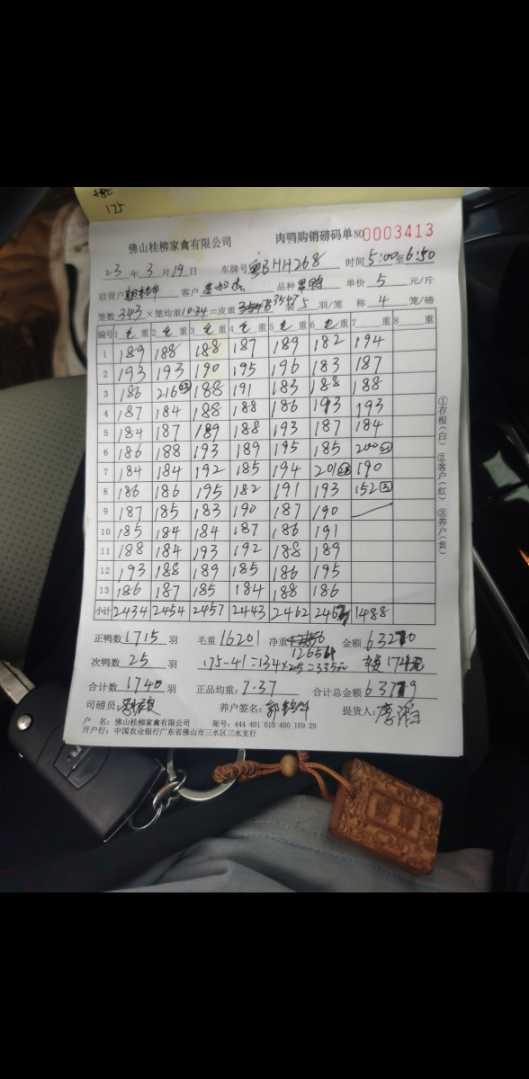 175
佛山桂柳家禽有限公司 肉鸭购销磅码单 NO 0003413
23年3月19日 车牌号 粤BHH268 时间 5:00至6:50
客户 品种 单价 5 元/斤
笼数 343 × 笼均重 10.34 = 皮重 3547 装 5 羽/笼 称 4 笼/磅
编号 1 毛 重 2 毛 重 3 毛 重 4 毛 重 5 毛 重 6 毛 重 7 重 8 重
1 189 188 188 187 189 182 194
2 193 193 190 195 196 183 187
3 186 216 188 191 183 188 188
4 187 184 188 188 186 193 193
5 184 187 189 188 193 187 184
6 186 188 193 189 195 185 200
7 184 184 192 185 194 201 190
8 186 186 195 182 191 193 152
9 187 185 183 190 187 190
10 185 184 184 187 186 191
11 188 184 193 192 188 189
12 193 188 189 185 186 195
13 186 187 185 184 188 186
小计 2434 2454 2457 2443 2462 1488
正鸭数 1715 羽 毛重 16201 净重 12654 金额 63270
次鸭数 25 羽 175-41=134×25=335元 174元
合计数 1740 羽 正品均重: 7.37 合计总金额 63779
司磅员: 养户签名: 提货人:
户 名: 佛山桂柳家禽有限公司 账号:
开户行: 中国农业银行广东省佛山市三水区三水支行
①存根(白) ②客户(红) ③养户(黄)